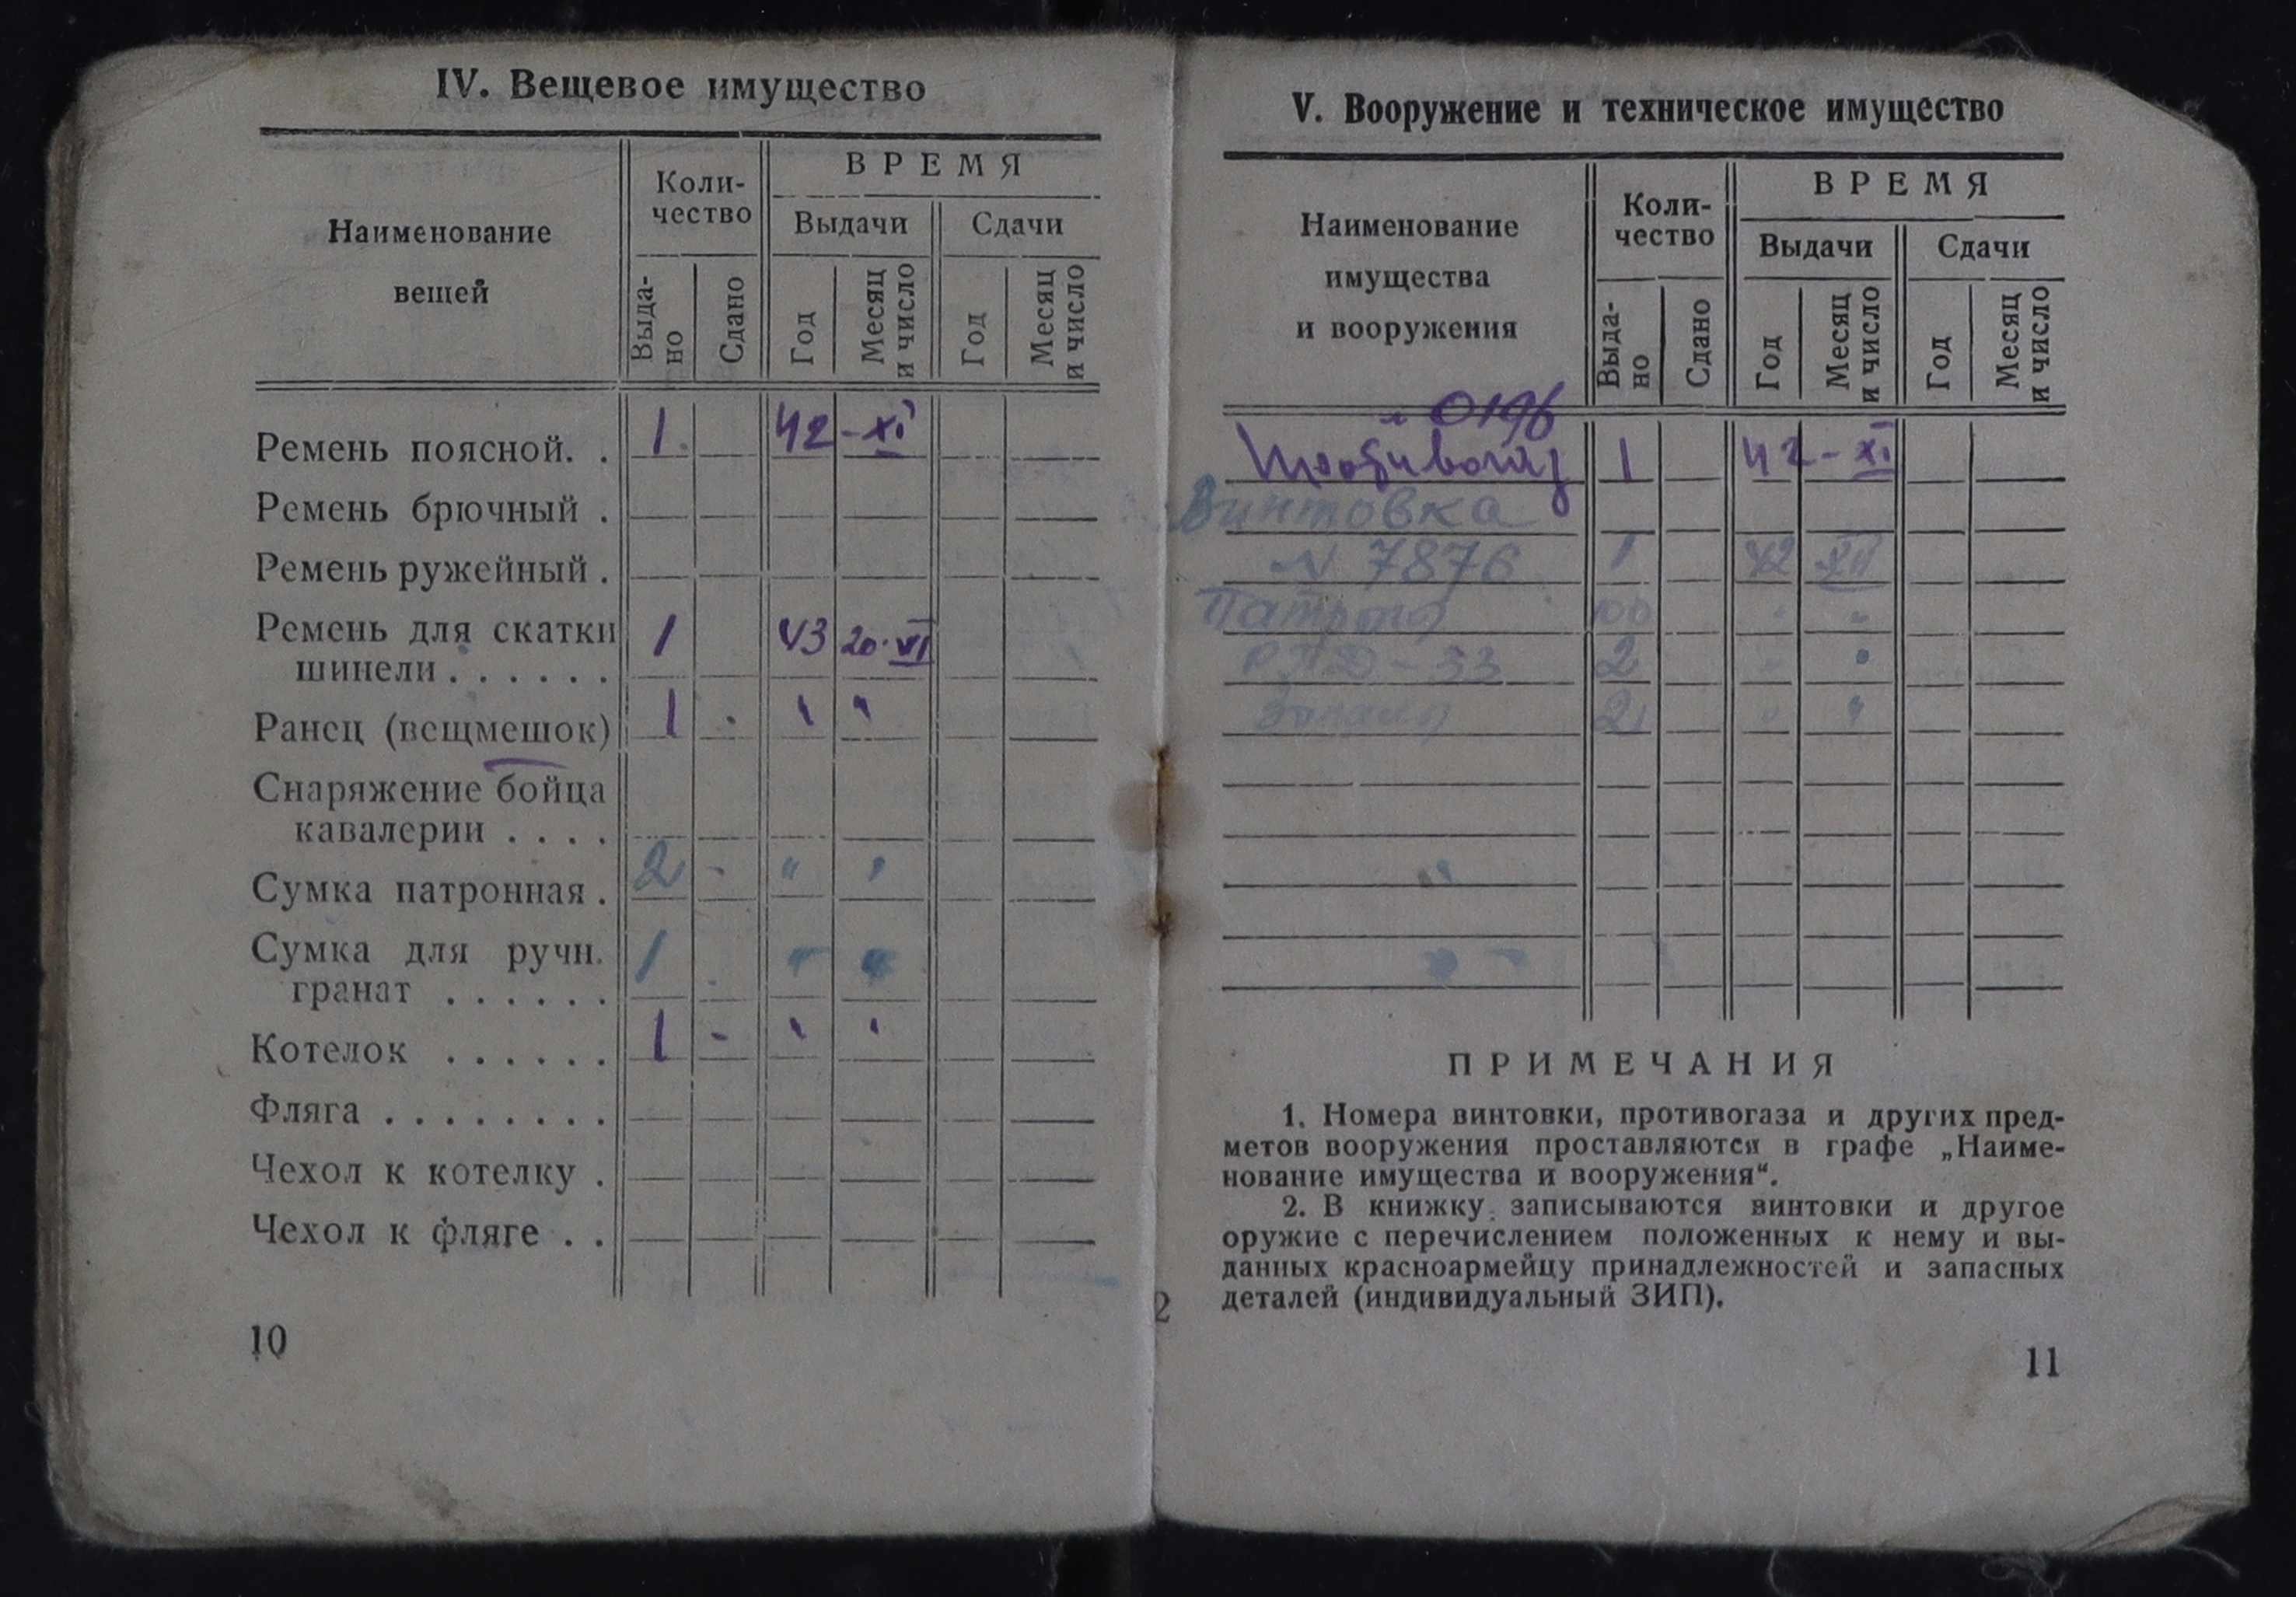 IV. Вещевое имущество
Наименование вещей
Коли-
чество
ВРЕМЯ
Выдачи
Сдачи
Выда-
но
Сдано
Год
Месяц
и число
Год
Месяц
и число
Ремень поясной. . 1. 42 - XI
Ремень брючный .
Ремень ружейный .
Ремень для скатки
шинели . . . . . . 1 43 20.VI
Ранец (вещмешок) 1 - " "
Снаряжение бойца
кавалерии . . . .
Сумка патронная . 2 - " "
Сумка для ручн.
гранат . . . . . . 1 " "
Котелок . . . . . . 1 - " "
Фляга . . . . . . . .
Чехол к котелку .
Чехол к фляге . .
10
V. Вооружение и техническое имущество
Наименование
имущества
и вооружения
Коли-
чество
ВРЕМЯ
Выдачи
Сдачи
Выда-
но
Сдано
Год
Месяц
и число
Год
Месяц
и число
0196
Противогаз 1 42 - XI
Винтовка
N 7876 1 42 XII
Патроны 100 " "
РГД-33 2 " "
Запалы 2 " "
ПРИМЕЧАНИЯ
1. Номера винтовки, противогаза и других пред-
метов вооружения проставляются в графе „Наиме-
нование имущества и вооружения“.
2. В книжку записываются винтовки и другое
оружие с перечислением положенных к нему и вы-
данных красноармейцу принадлежностей и запасных
деталей (индивидуальный ЗИП).
2
11